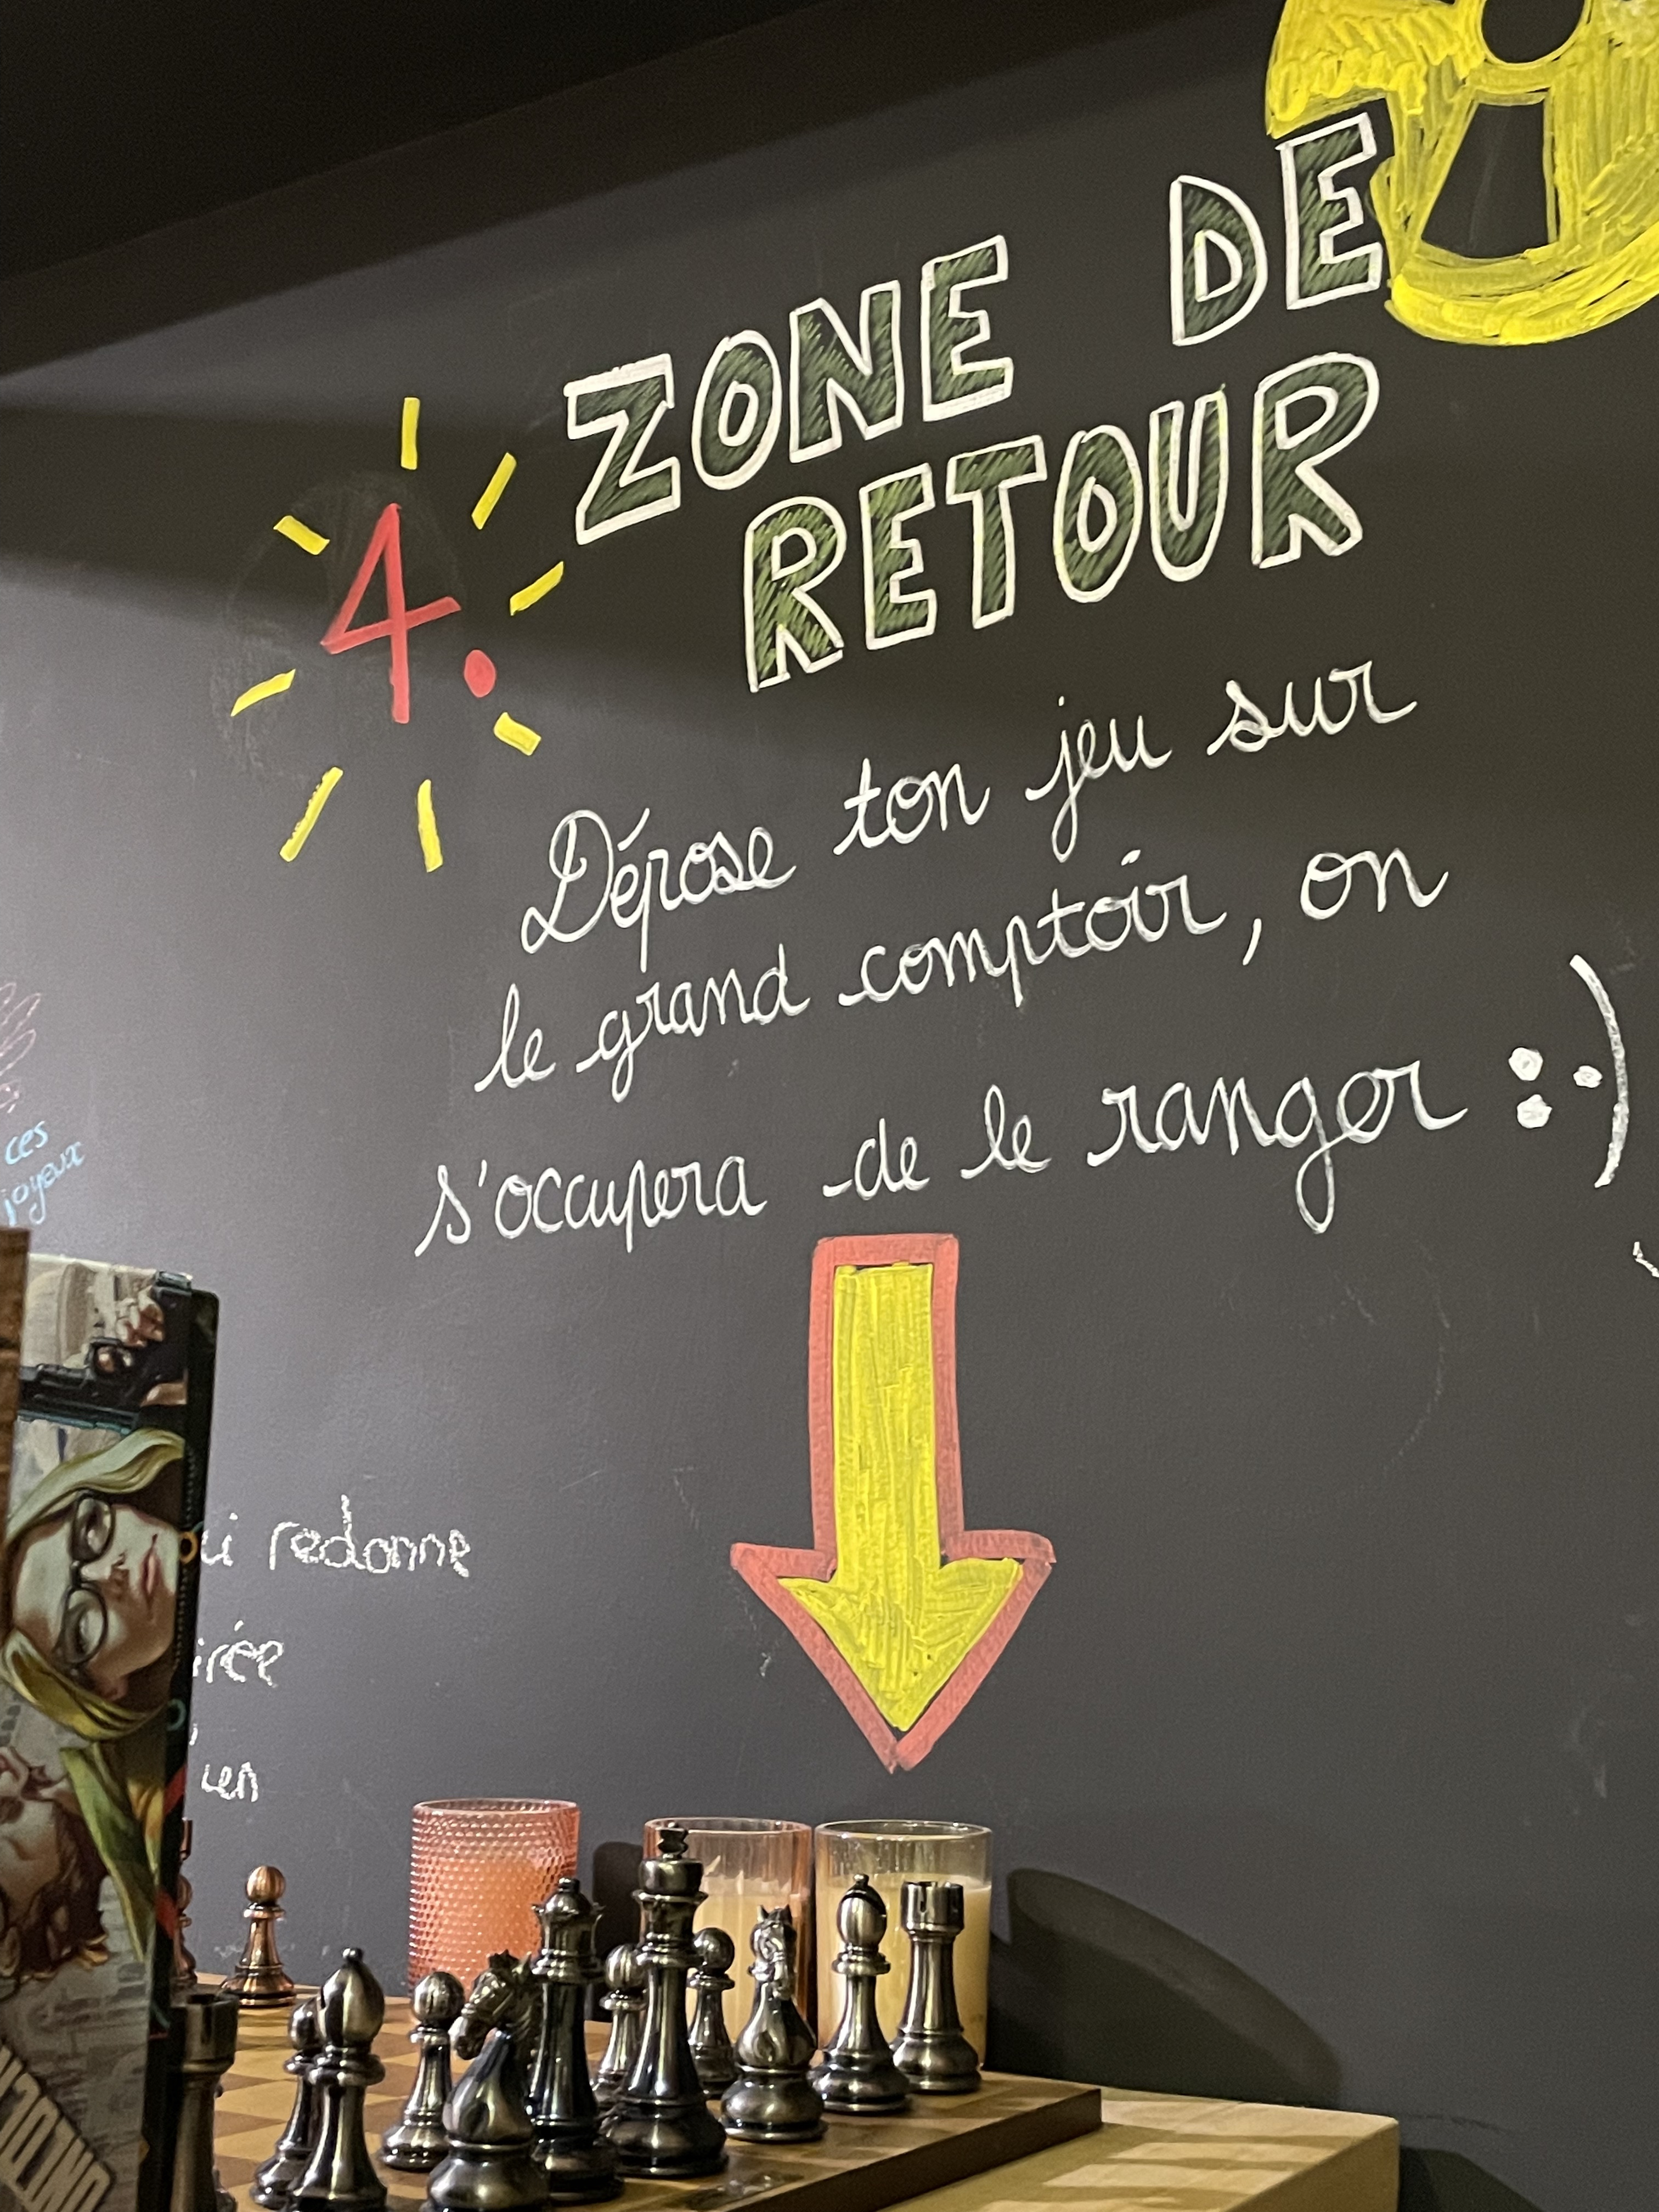 4.
ZONE DE
RETOUR
Dépose ton jeu sur
le grand comptoir, on
s'occupera de le ranger :·)
ces
joyeux
redonne